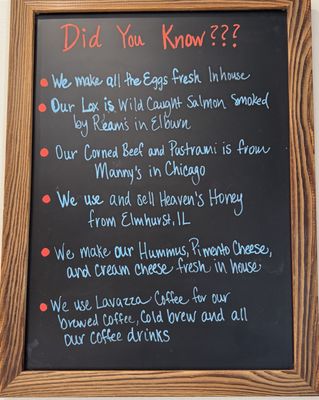 Did You Know???
We make all the Eggs fresh Inhouse
Our Lox is Wild Caught Salmon Smoked
by Ream's in Elburn
Our Corned Beef and Pastrami is from
Manny's in Chicago
We use and sell Heaven's Honey
from Elmhurst, IL
We make our Hummus, Pimento Cheese,
and cream cheese fresh in house
We use Lavazza Coffee for our
brewed coffee, cold brew and all
our coffee drinks